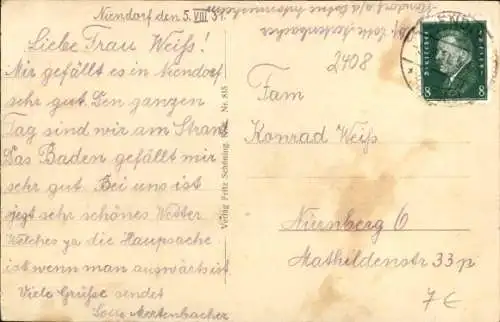 Niendorf den 5. VIII 31.
Liebe Frau Weiß!
Mir gefällt es in Niendorf
sehr gut. Den ganzen
Tag sind wir am Strand
Das Baden gefällt mir
sehr gut. Bei uns ist
jezt sehr schönes Wetter
Welches ja die Haupsache
ist wenn man auswärts ist.
Viele Grüße sendet
Lotte Mertenbacher
Verlag Fritz Schöning, Nr. 815
2408
Fam
Konrad Weiß
Nürnberg 6
Mathildenstr 33 p
7€
DEUTSCHES REICH
8 8